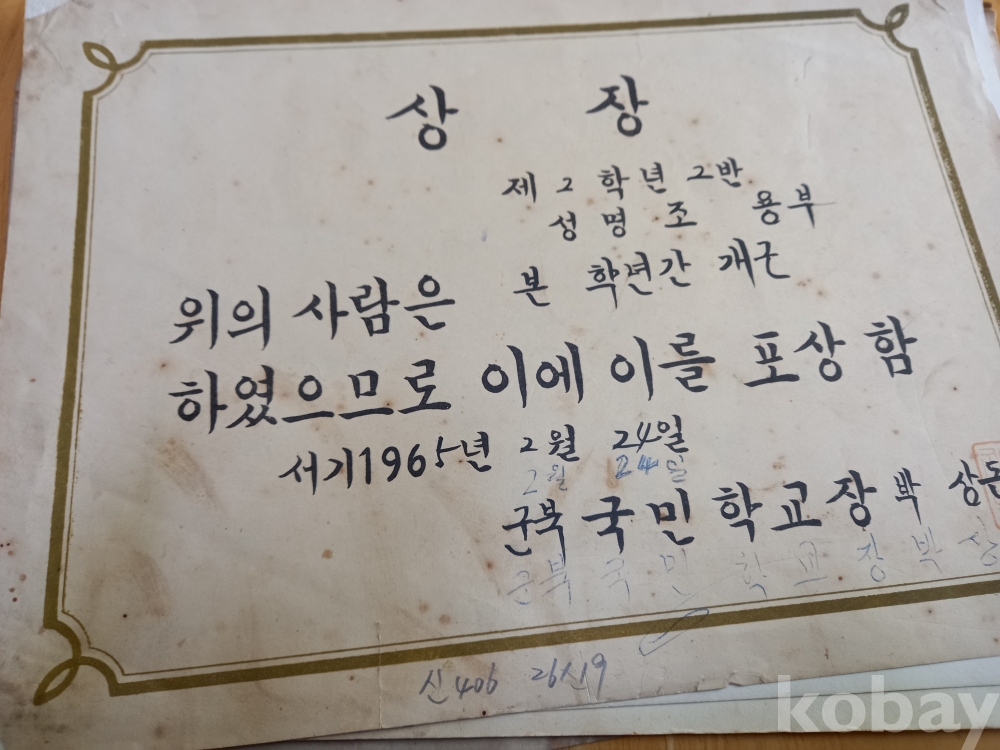 상 장
제 2 학년 2반
성명 조 용부
위의 사람은 본 학년간 개근
하였으므로 이에 이를 포상 함
서기1965년 2월 24일
2월 24일
군북 국민 학교장 박 상돈
군북 국 민 학 교 장 박 상
신406 26시19
kobay